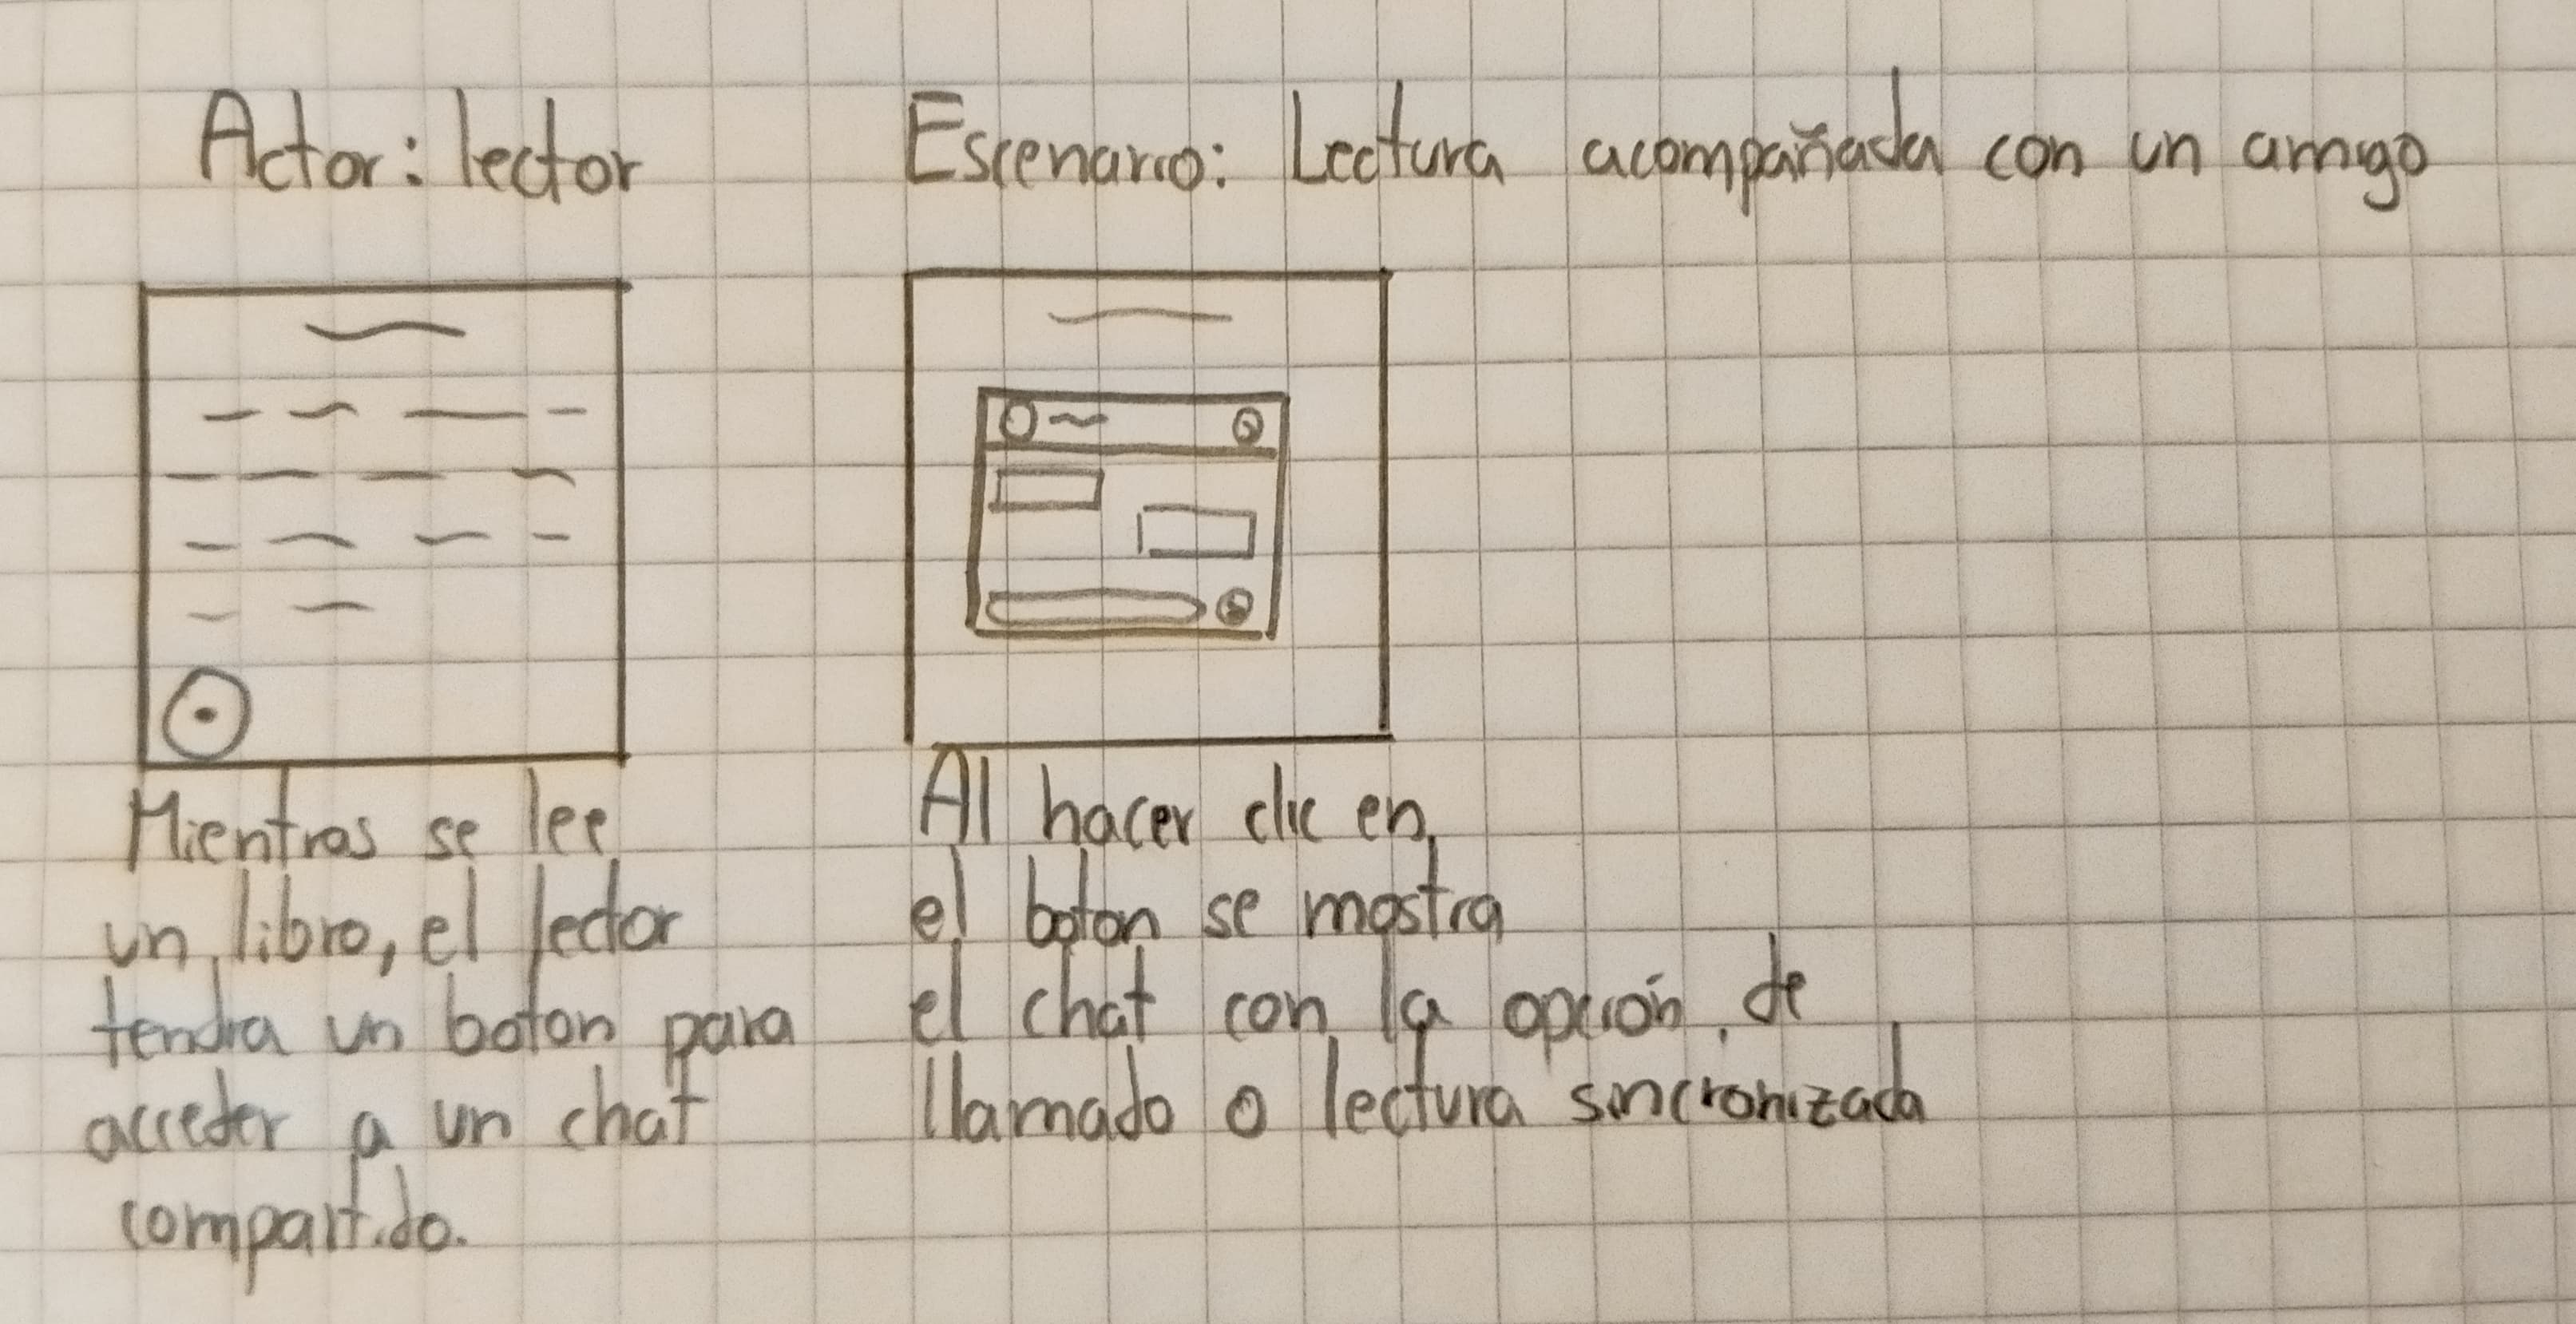 Actor: lector
Escenario: Lectura acompañada con un amigo
Mientras se lee
un libro, el lector
tendra un boton para
acceder a un chat
compartido.
Al hacer clic en
el boton se mostra
el chat con la opción de
llamado o lectura sincronizada